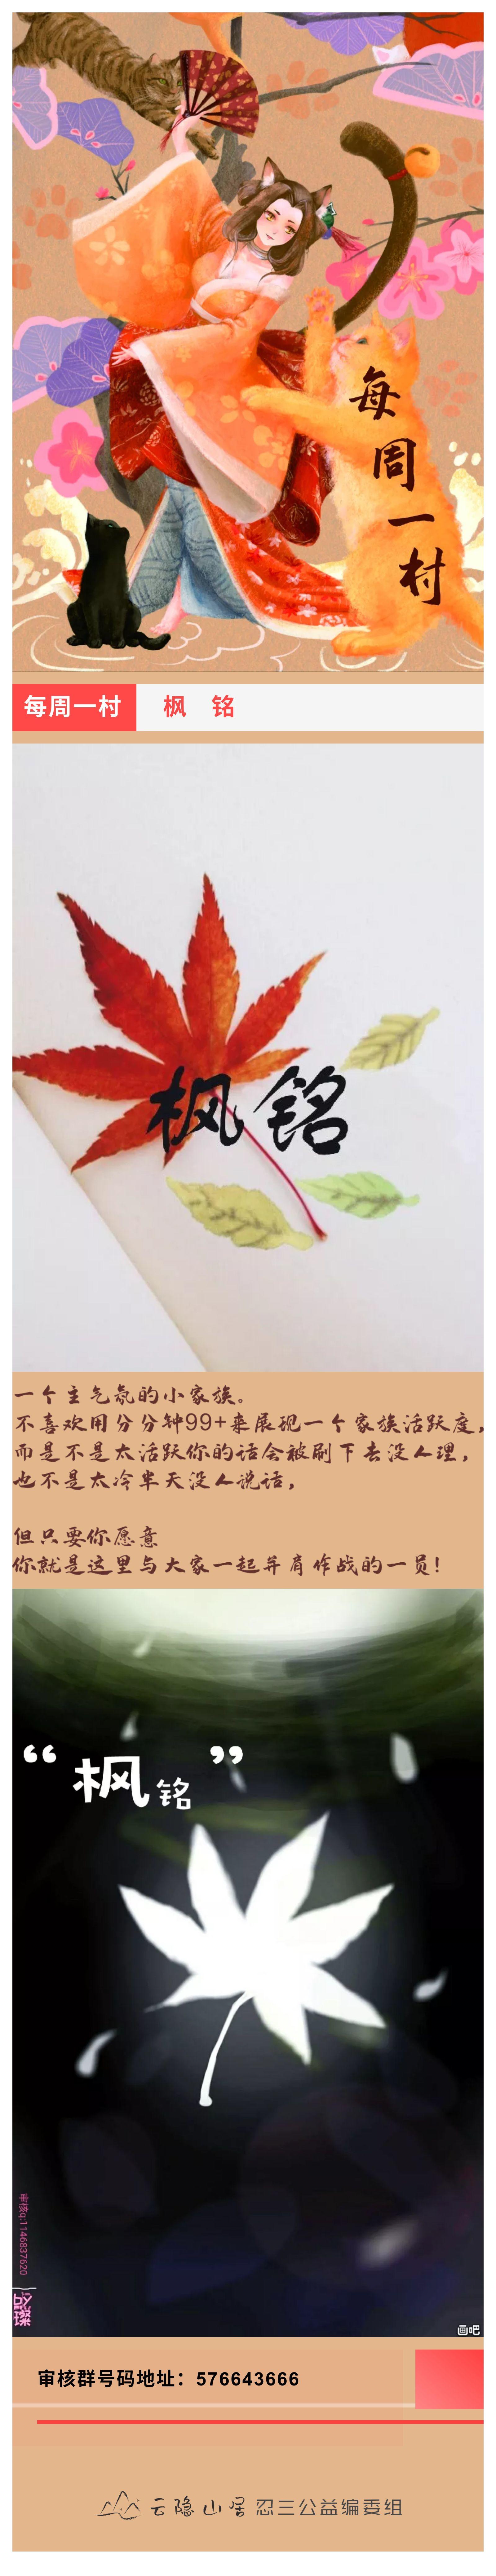 每
周
一
村
每周一村 枫 铭
枫 铭
一个主气氛的小家族。
不喜欢用分分钟99+来展现一个家族活跃度,
而是不是太活跃你的话会被刷下去没人理,
也不是太冷半天没人说话,
但只要你愿意
你就是这里与大家一起并肩作战的一员!
“ 枫铭 ”
审核q:1146837620
画吧
审核群号码地址：576643666
云隐山居 忍三公益编委组